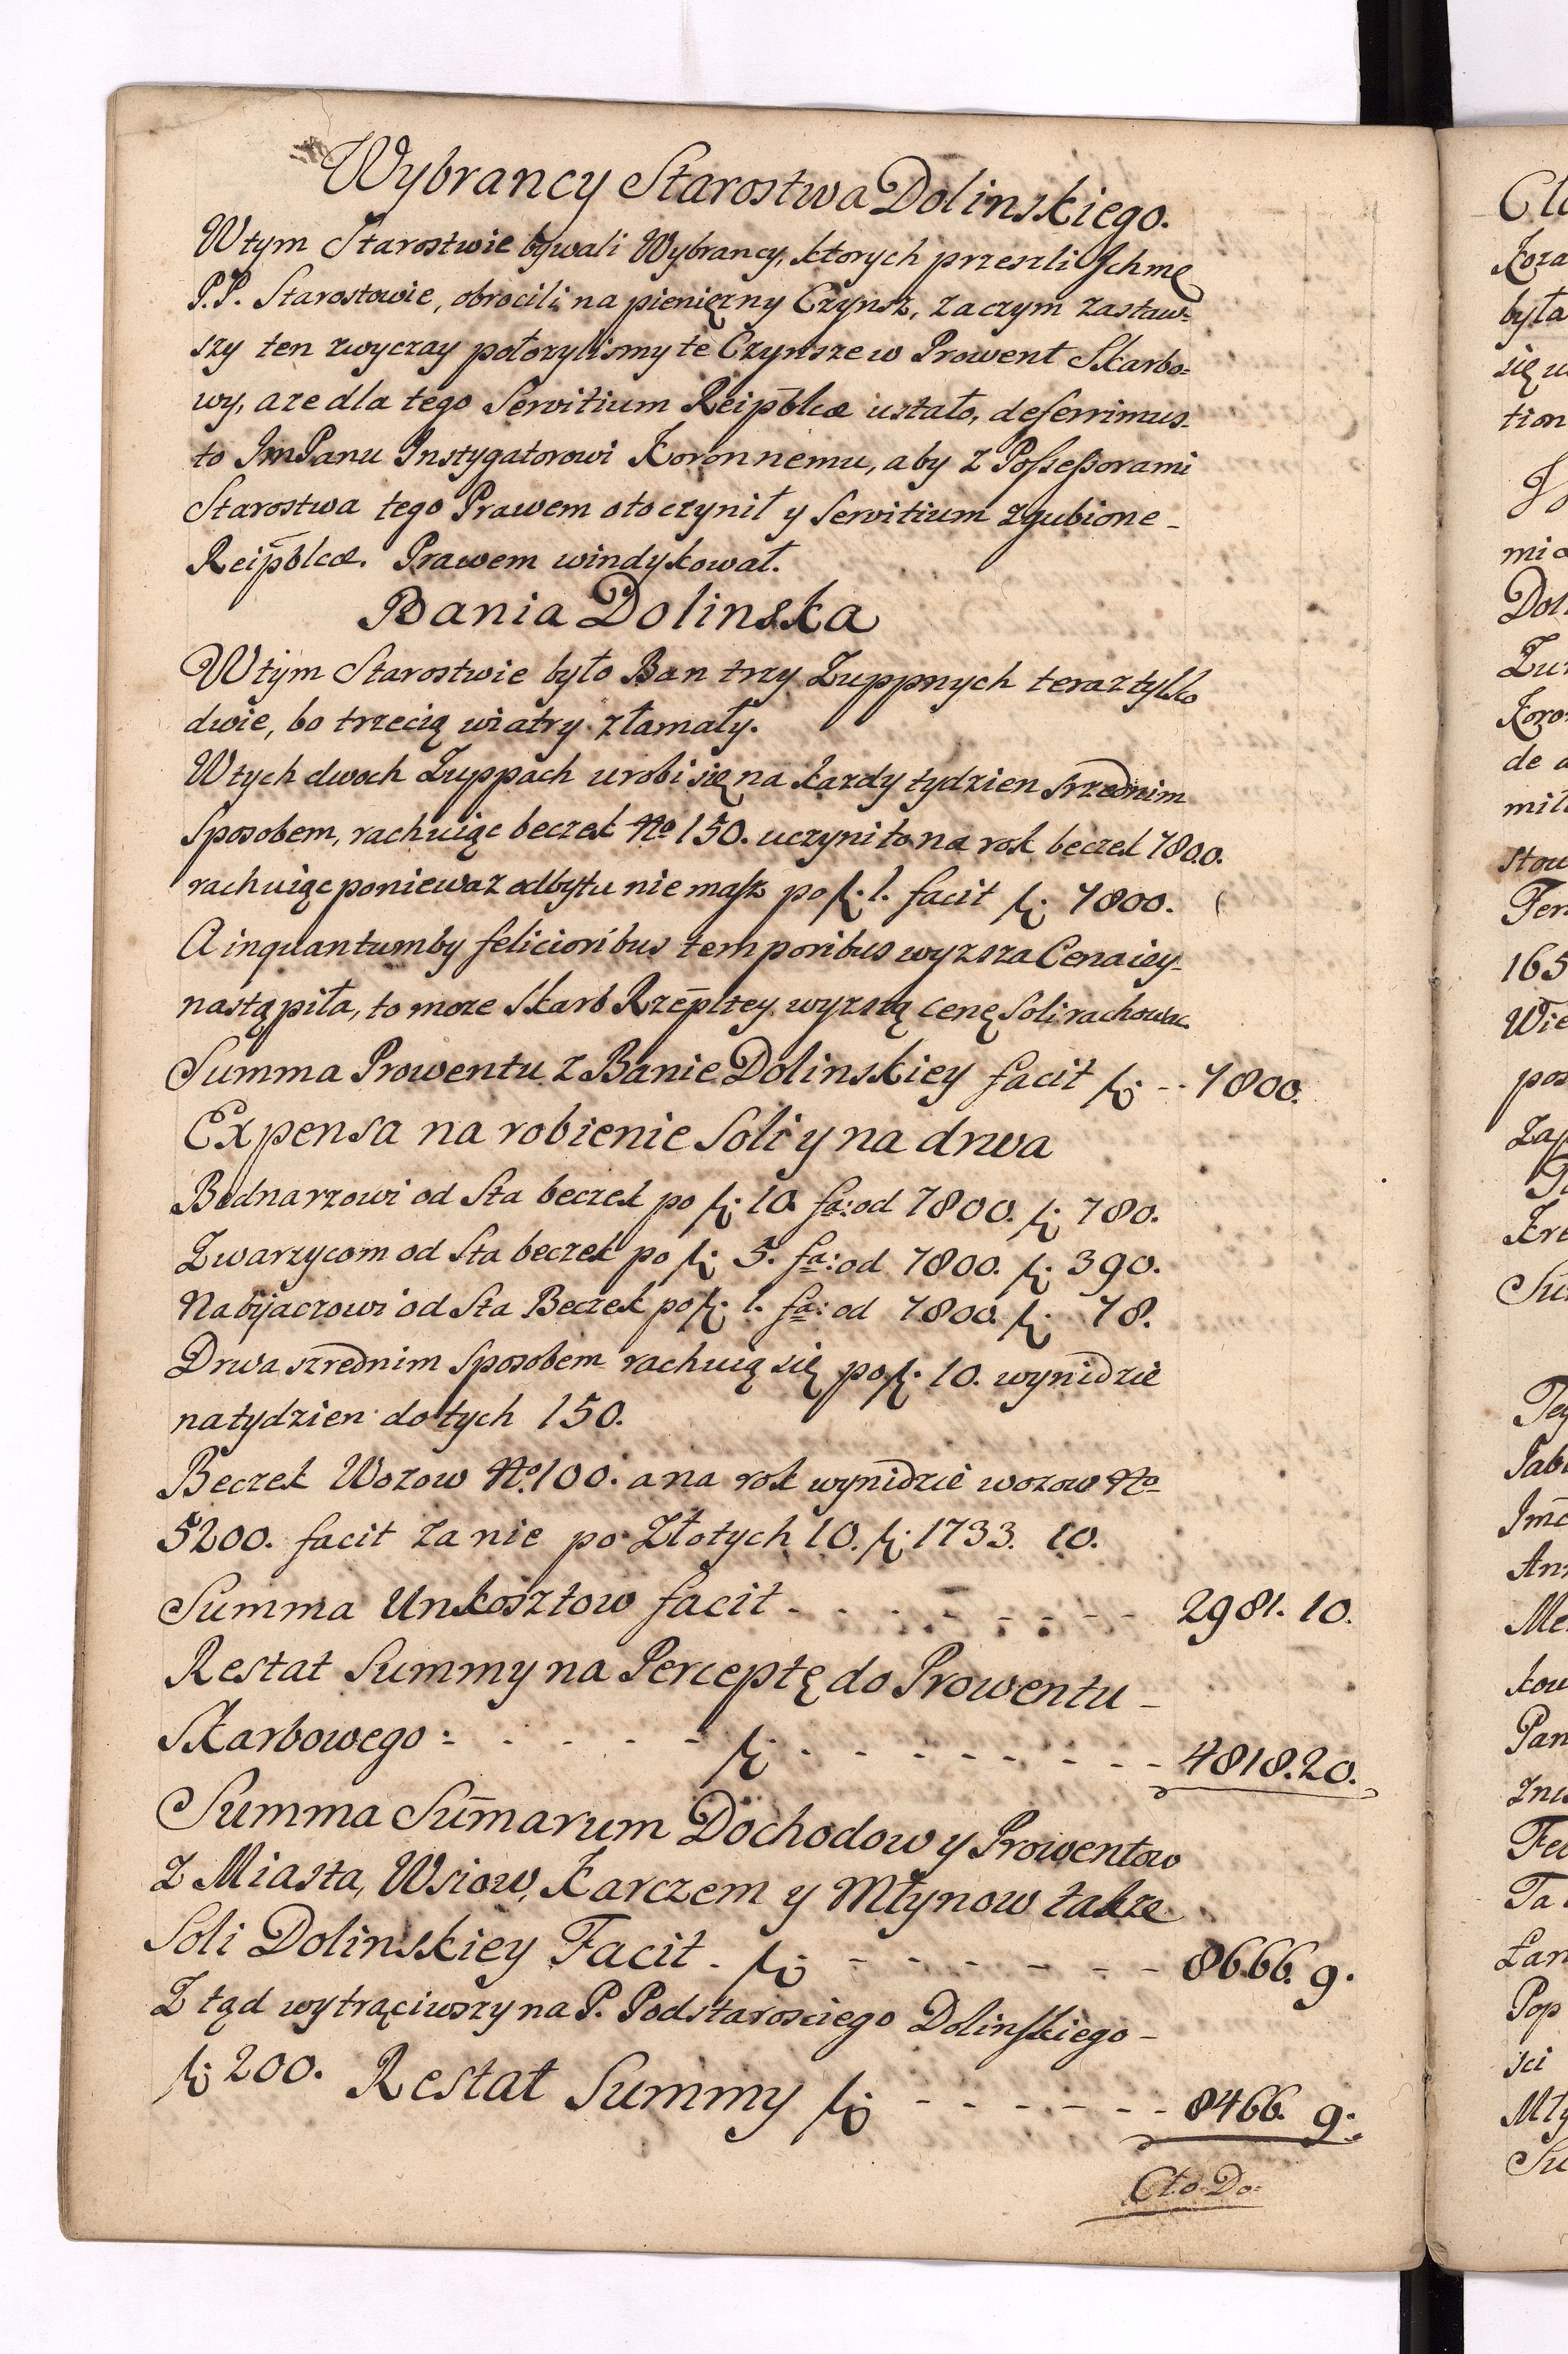 Wybrancy Starostwa Dolinskiego.
W tym Starostwie bywali Wybrancy, ktorych przeszli Ichmę
P.P. Starostowie, obrocili na pienięzny Czynsz, zaczym zastaw=
szy ten zwyczay położylismy te Czynsze w Prowent Skarbo=
wy, a że dla tego Servitium Reipblcæ ustało, deferrimus
to ImPanu Instygatorowi Koronnemu, aby z Possessorami
Starostwa tego Prawem oto czynił y Servitium zgubione -
Reipblcæ. Prawem windykował.
Bania Dolinska
W tym Starostwie było Ban trzy Zuppnych teraz tylko
dwie, bo trzecią wiatry złamały.
W tych dwoch Zuppach urobi się na kazdy tydzien srzednim
Sposobem, rachuiąc beczek No 150. uczyni to na rok beczek 7800.
rachuiąc poniewaz odbytu nie masz po fl. 1. facit fl. 7800.
A inquantumby felicioribus temporibus wyzsza Cena iey
nastąpiła, to moze Skarb Rzepltey wyzszą cenę Soli rachowac.
Summa Prowentu z Banie Dolinskiey facit fl. - - 7800.
Expensa na robienie Soli y na drwa
Bednarzowi od Sta beczek po fl. 10. fa: od 7800. fl. 780.
Zwarzycom od Sta beczek po fl. 5. fa: od 7800. fl. 390.
Nabijaczowi od Sta Beczek po fl. 1. fa: od 7800. fl. 78.
Drwa szrednim Sposobem rachuią się po fl. 10. wynidzie
na tydzien do tych 150.
Beczek Wozow No. 100. a na rok wynidzie wozow No
5200. facit za nie po Złotych 10. fl. 1733. 10.
Summa Unkosztow facit - - - - - - - - 2981. 10.
Restat Summy na Perceptę do Prowentu -
Skarbowego: - - - - - fl. - - - - - - - - 4818. 20.
Summa Sumarum Dochodow y Prowentow
z Miasta, Wsiow, Karczem y Młynow takze
Soli Dolinskiey Facit - fl. - - - - - - - 8666. 9.
Z tąd wytrąciwszy na P. Podstarosciego Dolinskiego -
fl. 200. Restat Summy fl. - - - - - - 8466. 9.
Cło Do=